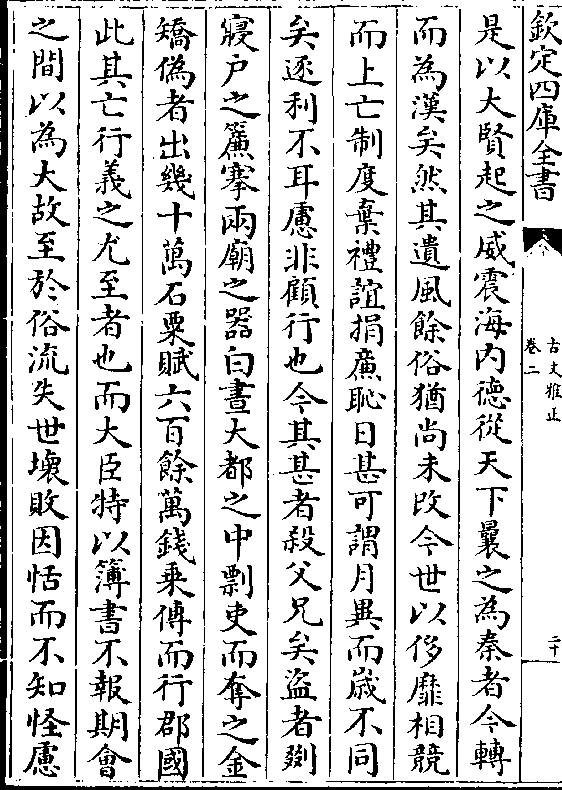 欽定四庫全書
古文雅正
卷二
二十
是以大賢起之威震海内德從天下曩之為秦者今轉
而為漢矣然其遺風餘俗猶尚未改今世以侈靡相競
而上亡制度棄禮誼捐廉恥日甚可謂月異而歳不同
矣逐利不耳慮非顧行也今其甚者殺父兄矣盗者剟
寢户之簾搴兩廟之器白晝大都之中剽吏而奪之金
矯偽者出幾十萬石粟賦六百餘萬錢乘傳而行郡國
此其亡行義之尤至者也而大臣特以簿書不報期會
之間以為大故至於俗流失世壊敗因恬而不知怪慮